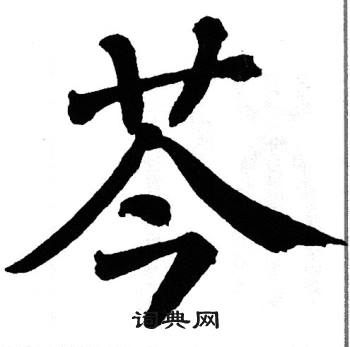 芩
词典网